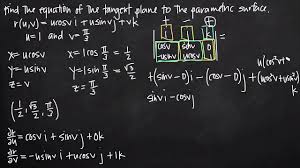 find the equation of the tangent plane to the parametric surface.
r(u,v) = ucosv i + usinv j + vk
u = 1 and v = π/3
x = ucosv
y = usinv
z = v
x = 1cos π/3 = 1/2
y = 1sin π/3 = √3/2
z = π/3
(1/2, √3/2, π/3)
∂r/∂u = cosv i + sinv j + 0k
∂r/∂v = -usinv i + ucosv j + 1k
+ - +
i j k
cosv sinv 0
-usinv ucosv 1
+(sinv - 0)i - (cosv - 0)j + (ucos²v + usin²v)k
sinv i - cosv j